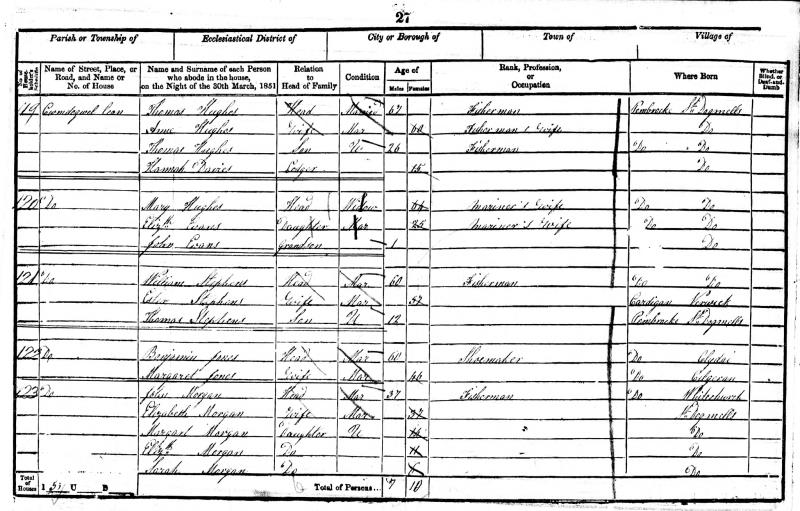 27
Parish or Township of Ecclesiastical District of City or Borough of Town of Village of
No. of Householder's Schedule Name of Street, Place, or Road, and Name or No. of House Name and Surname of each Person who abode in the house, on the Night of the 30th March, 1851 Relation to Head of Family Condition Age of Males Females Rank, Profession, or Occupation Where Born Whether Blind, or Deaf-and-Dumb
119 Thomas Hughes Head 67 Fisherman Pembroke St Dogmells
Anne Hughes Wife Mar Fisherman's Wife Do
Thomas Hughes Son U 26 Fisherman Do Do
Hannah Davies Lodger 15 Do
120 Do Mary Hughes Head Widow Mariner's Wife Do Do
Elizth Evans Daughter Mar 25 Mariner's Wife Do Do
John Evans Grandson 1 Do
121 Do William Stephens Head Mar 60 Fisherman Do Do
Ester Stephens Wife Mar 52 Cardigan Verwick
Thomas Stephens Son U 12 Pembroke St Dogmells
122 Do Benjamin Jones Head Mar 60 Shoemaker Do Clydai
Margaret Jones Wife Mar 66 Do Cilgeran
123 Do John Morgan Head Mar 37 Fisherman Do Whitechurch
Elizabeth Morgan Wife Mar 32 St Dogmells
Margaret Morgan Daughter U " Do
Elizth Morgan Do Do
Sarah Morgan Do Do
Total of Houses 1 U B Total of Persons... 7 10